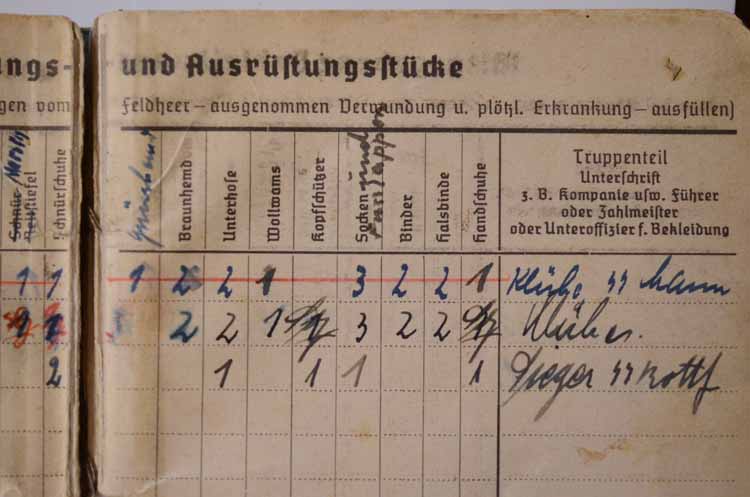 ngs- und Ausrüstungsstücke
gen vom Feldheer – ausgenommen Verwundung u. plötzl. Erkrankung – ausfüllen)
Schnür Marsch
Reitstiefel
Schnürschuhe
Braunhemd
Unterhose
Wollwams
Kopfschützer
Socken und
Fusslappen
Binder
Halsbinde
Handschuhe
Truppenteil
Unterschrift
z. B. Kompanie usw. Führer
oder Zahlmeister
oder Unteroffizier f. Bekleidung
1 1 1 2 2 1 3 2 2 1 Klüber ϟϟ Mann
2 2 1 1 3 2 2 Klüber.
2 1 1 1 1 Sieger ϟϟ Rottf